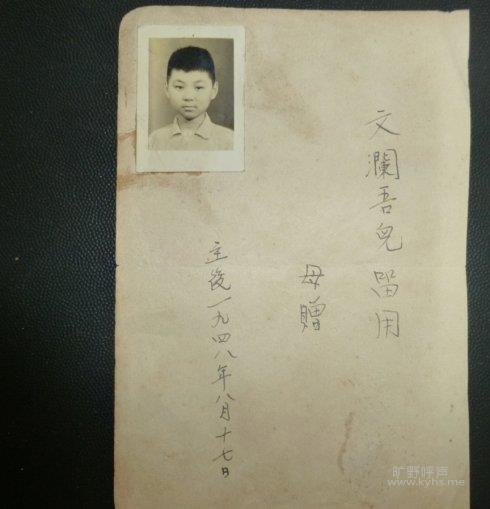 文瀾吾兒 留用
母贈
主後一九四八年八月十七日
旷野呼声
www.kyhs.me